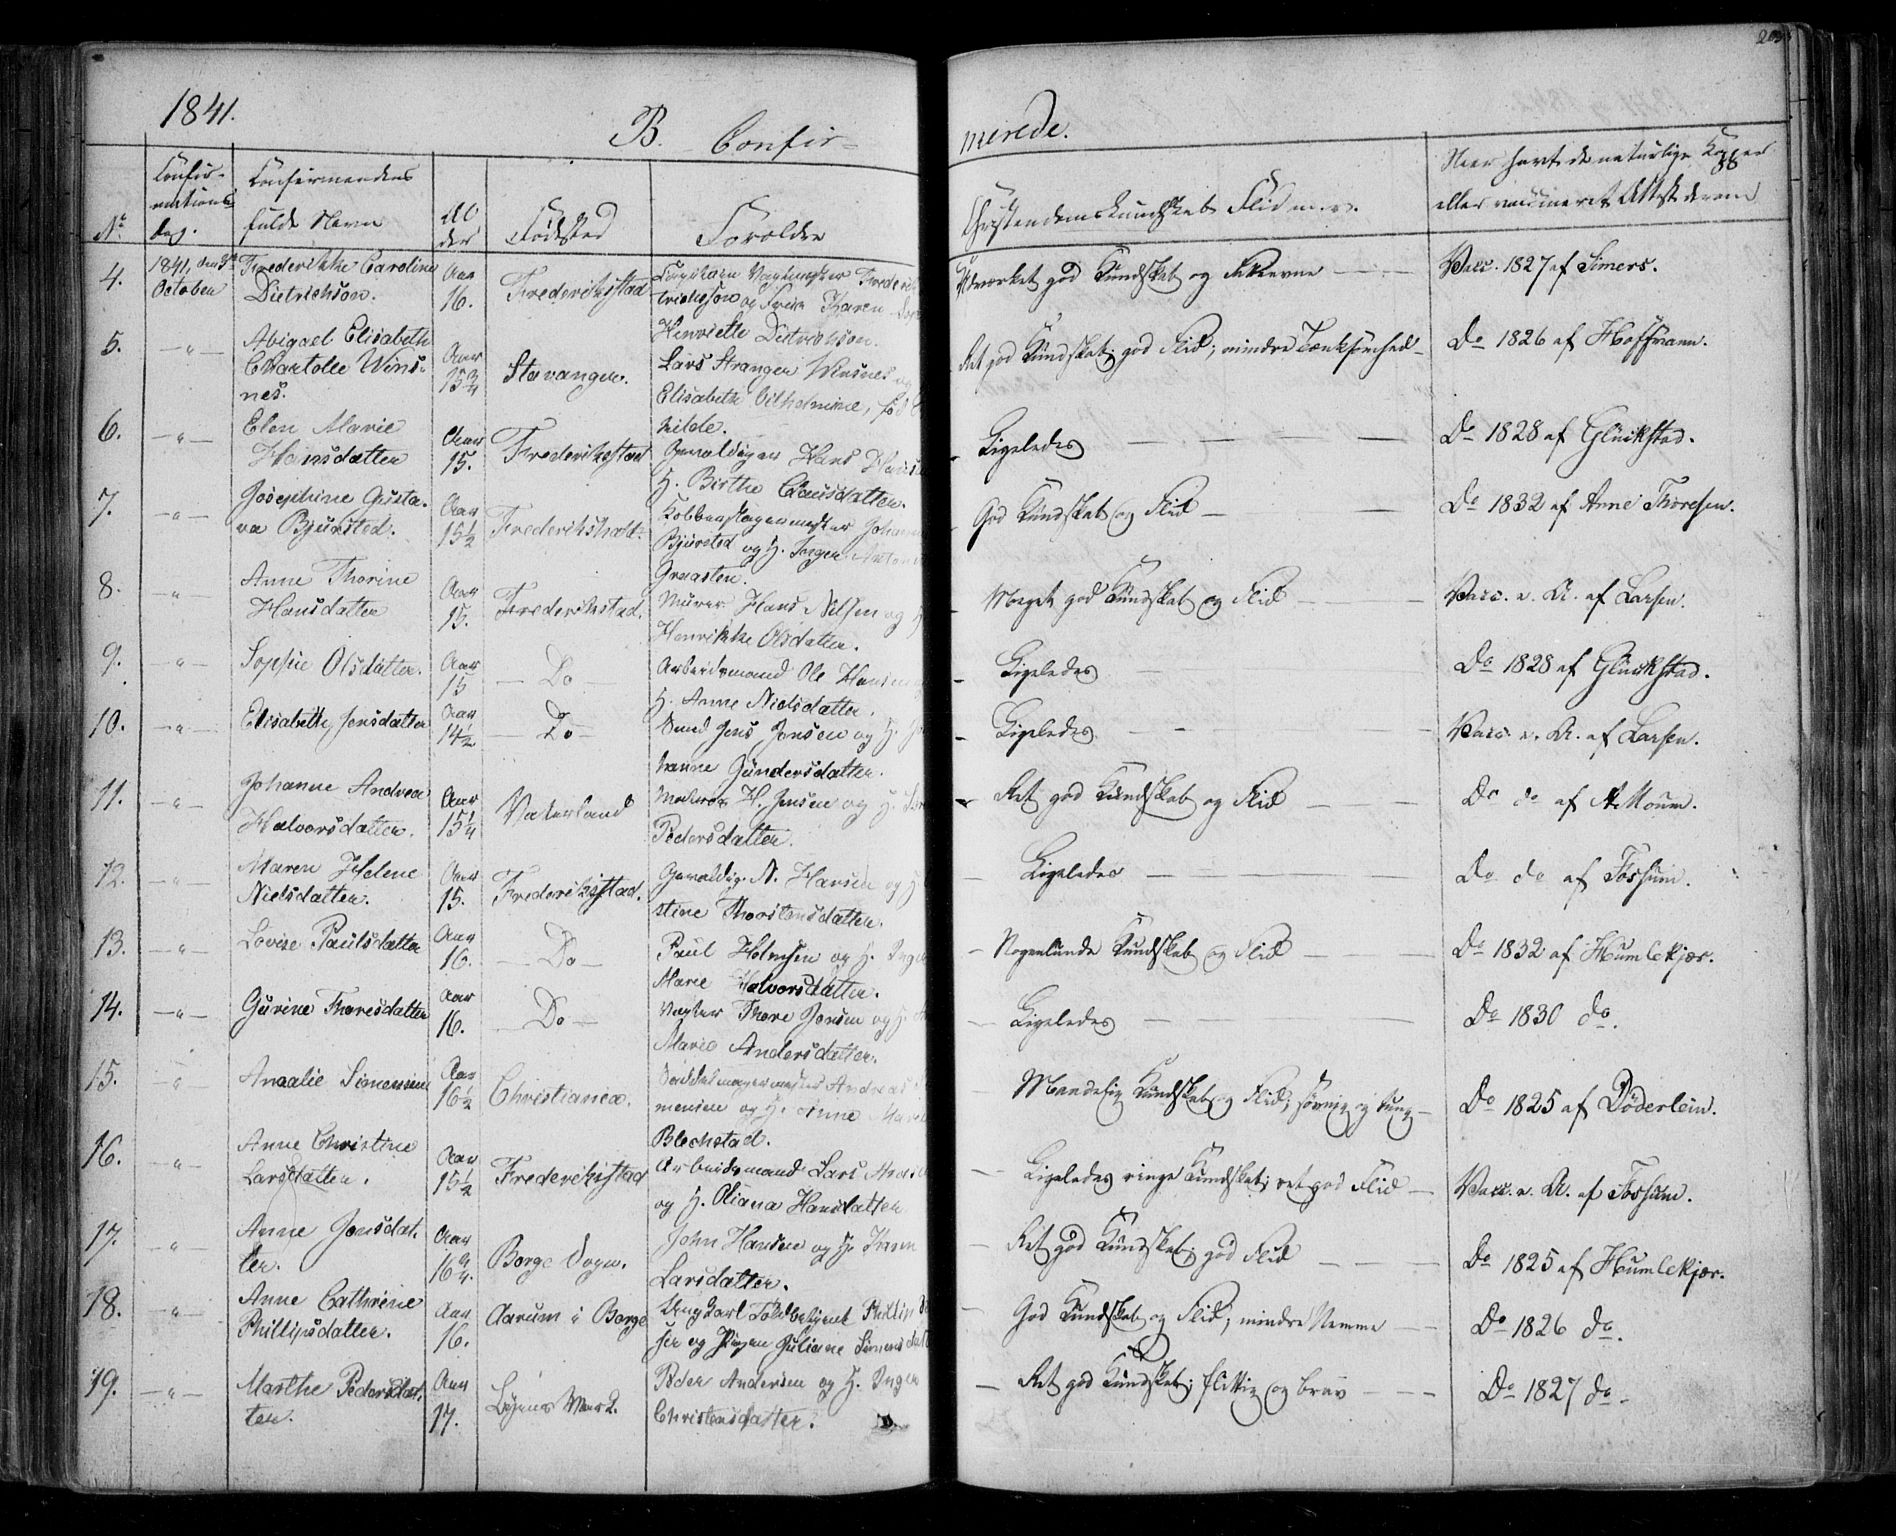 1841.
B. Confir-
merede.
No.
Confir-
mations
dag.
Confirmandens
fulde Navn
Al
der
Fødested
Forældre
Christendomskundskab Flid m.v.
Naar havt de naturlige Kopper
eller vaccineret Attest derom
4. 1841, den 3die October
Frederikke Caroline
Dietrichson.
Aar
16.
Frederikstad
Frederik
trichson og Frue Karen
Henriette Dietrichson.
Udmærket god Kundskab og Flid
Vacc. 1827 af Simers.
5. -"-
Abigael Elisabeth
Chartolle Wins-
nes.
Aar
15 3/4
Stavanger.
Lars Stranger Winsnes og
Elisabeth Vilhelmine, fød
hilde.
Ret god Kundskab, god Flid; mindre Tænksomhed
Do 1826 af Hoffmann.
6. -"-
Elen Marie
Hansdatter
Aar
15.
Frederikstad
Gevaldiger Hans
H. Birthe Clausdatter.
Ligeledes
Do 1828 af Glückstad.
7. -"-
Josephine Gusta-
va Bjursted.
Aar
15 1/2
Frederikshald.
Kobberslagermester Johannes
Bjursted og H. Inger
Graasten.
God Kundskab og Flid
Do 1832 af Anne Thoresen.
8. -"-
Anne Thorine
Hansdatter
Aar
15.
Frederikstad.
Murer Hans Nilsen og H
Henrikke Olsdatter.
Meget god Kundskab og Flid
Vacc. v. A. af Larsen.
9. -"-
Sophie Olsdatter.
Aar
15
Do
Arbeidsmand Ole Hansen
H. Anne Nielsdatter.
Ligeledes
Do 1828 af Glückstad.
10. -"-
Elisabeth Jensdatter
Aar
14 1/2
Do
Jens Jensen og H. Jo
hanne Gundersdatter.
Ligeledes
Vacc. v. A. af Larsen.
11. -"-
Johanne Andrea
Halvorsdatter.
Aar
15 1/4
Vaterland
H. Jensen og H.
Pedersdatter.
Ret god Kundskab og Flid
Do do af A. Moum.
12. -"-
Maren Helene
Nielsdatter.
Aar
15.
Frederikstad.
Gevaldig. N. Hansen og H
stine Thorstensdatter.
Ligeledes
Do do af Fossum.
13. -"-
Lovise Paulsdatter
Aar
16.
Do
Paul Holmsen og H. Inge
Marie Halvorsdatter.
Nogenlunde Kundskab og Flid
Do 1832 af Humlekjær.
14. -"-
Gurine Thoresdatter
Aar
16.
Do
Vægter Thore Jensen og H.
Marie Andersdatter.
Ligeledes
Do 1830 do.
15. -"-
Amalie Simensen
Aar
16 1/2
Christiania.
Saddelmagermester Andreas
mensen og H. Anne
Blechstad.
Maadelig Kundskab og Flid; søvnig og tung
Do 1825 af Døderlein.
16. -"-
Anne Christine
Larsdatter.
Aar
15 1/2
Frederikstad
Arbeidsmand Lars
og H. Oliana Hansdatter
Ligeledes ringe Kundskab; ret god Flid
Vacc. v. A. af Fossum.
17. -"-
Anne Jonsdat-
ter.
Aar
16
Borge Sogn.
John Hansen og H. Karen
Larsdatter.
Ret god Kundskab; god Flid
Do 1825 af Humlekjær.
18. -"-
Anne Cathrine
Phillipsdatter.
Aar
16.
Aarum i Borge
Ungkarl Phillip
sen og Pigen Juliane Simensdatt
God Kundskab og Flid; mindre Nemme
Do 1826 do.
19. -"-
Marthe Pedersdat-
ter.
Aar
17.
Peder Andersen og H. Inger
Christensdatter.
Ret god Kundskab; flittig og brav
Do 1827 do.